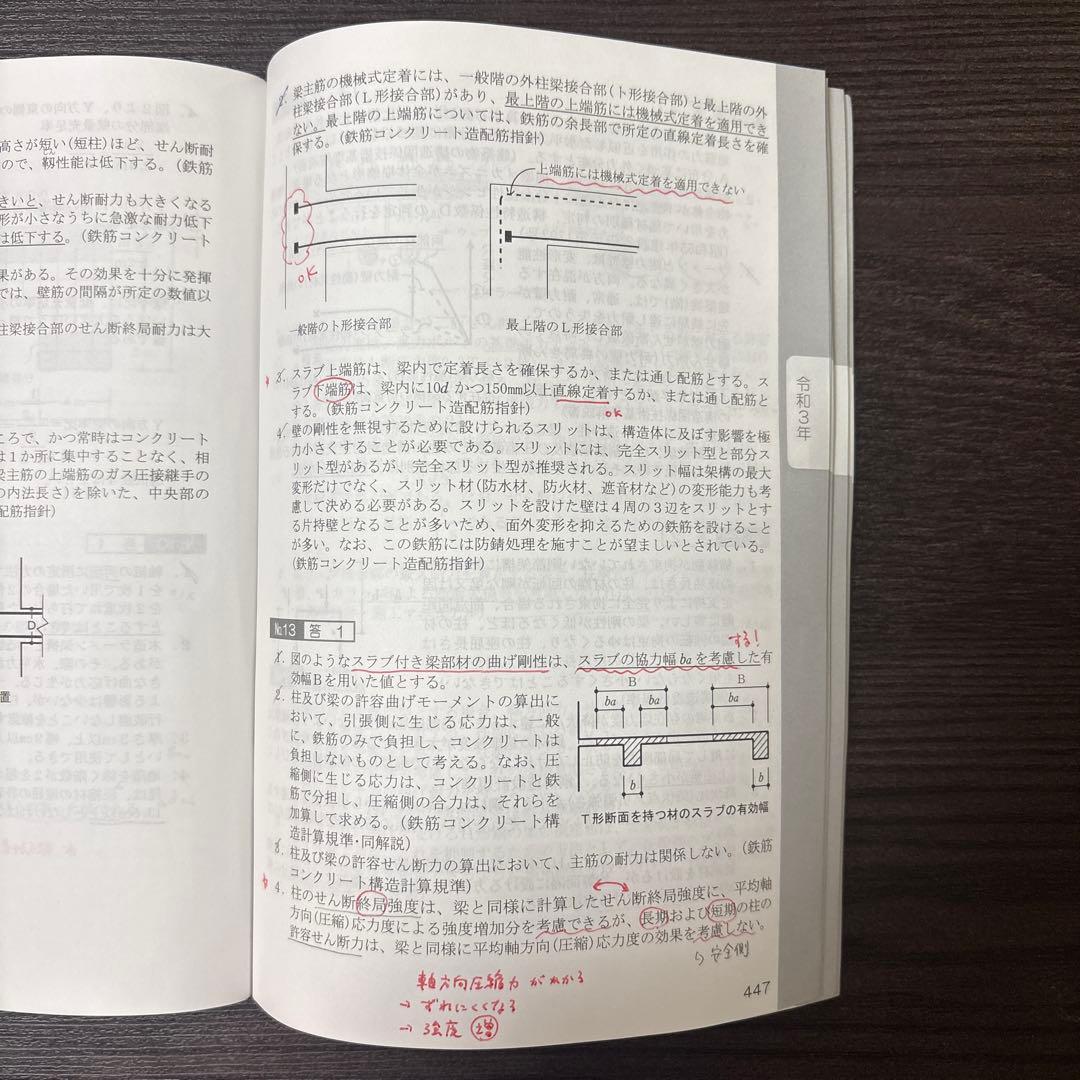 高さが短い(短柱)ほど、せん断耐
ので、靱性能は低下する。(鉄筋
じん
きいと、せん断耐力も大きくなる
形が小さなうちに急激な耐力低下
は低下する。(鉄筋コンクリート
果がある。その効果を十分に発揮
では、壁筋の間隔が所定の数値以
柱梁接合部のせん断終局耐力は大
ころで、かつ常時はコンクリート
は1か所に集中することなく、相
梁主筋の上端筋のガス圧接継手の
の内法長さ)を除いた、中央部の
配筋指針)
D
置
2. 梁主筋の機械式定着には、一般階の外柱梁接合部(ト形接合部)と最上階の外
柱梁接合部(L形接合部)があり、最上階の上端筋には機械式定着を適用でき
ない。最上階の上端筋については、鉄筋の余長部で所定の直線定着長さを確
保する。(鉄筋コンクリート造配筋指針)
上端筋には機械式定着を適用できない
OK
一般階のト形接合部
最上階のL形接合部
3. スラブ上端筋は、梁内で定着長さを確保するか、または通し配筋とする。ス
ラブ下端筋は、梁内に10dかつ150mm以上直線定着するか、または通し配筋と
する。(鉄筋コンクリート造配筋指針)
OK
4. 壁の剛性を無視するために設けられるスリットは、構造体に及ぼす影響を極
力小さくすることが必要である。スリットには、完全スリット型と部分ス
リット型があるが、完全スリット型が推奨される。スリット幅は架構の最大
変形だけでなく、スリット材(防水材、防火材、遮音材など)の変形能力も考
慮して決める必要がある。スリットを設けた壁は4周の3辺をスリットとす
る片持壁となることが多いため、面外変形を抑えるための鉄筋を設けること
が多い。なお、この鉄筋には防錆処理を施すことが望ましいとされている。
(鉄筋コンクリート造配筋指針)
令和3年
No.13 答 1
する!
1. 図のようなスラブ付き梁部材の曲げ剛性は、スラブの協力幅baを考慮した有
効幅Bを用いた値とする。
2. 柱及び梁の許容曲げモーメントの算出に
おいて、引張側に生じる応力は、一般
に、鉄筋のみで負担し、コンクリートは
負担しないものとして考える。なお、圧
縮側に生じる応力は、コンクリートと鉄
筋で分担し、圧縮側の合力は、それらを
加算して求める。(鉄筋コンクリート構
造計算規準・同解説)
B B
ba ba ba
b b
T形断面を持つ材のスラブの有効幅
3. 柱及び梁の許容せん断力の算出において、主筋の耐力は関係しない。(鉄筋
コンクリート構造計算規準)
4. 柱のせん断終局強度は、梁と同様に計算したせん断終局強度に、平均軸
方向(圧縮)応力度による強度増加分を考慮できるが、長期および短期の柱の
許容せん断力は、梁と同様に平均軸方向(圧縮)応力度の効果を考慮しない。
↳安全側
軸方向圧縮力がかかる
→ずれにくくなる
→強度 増
447